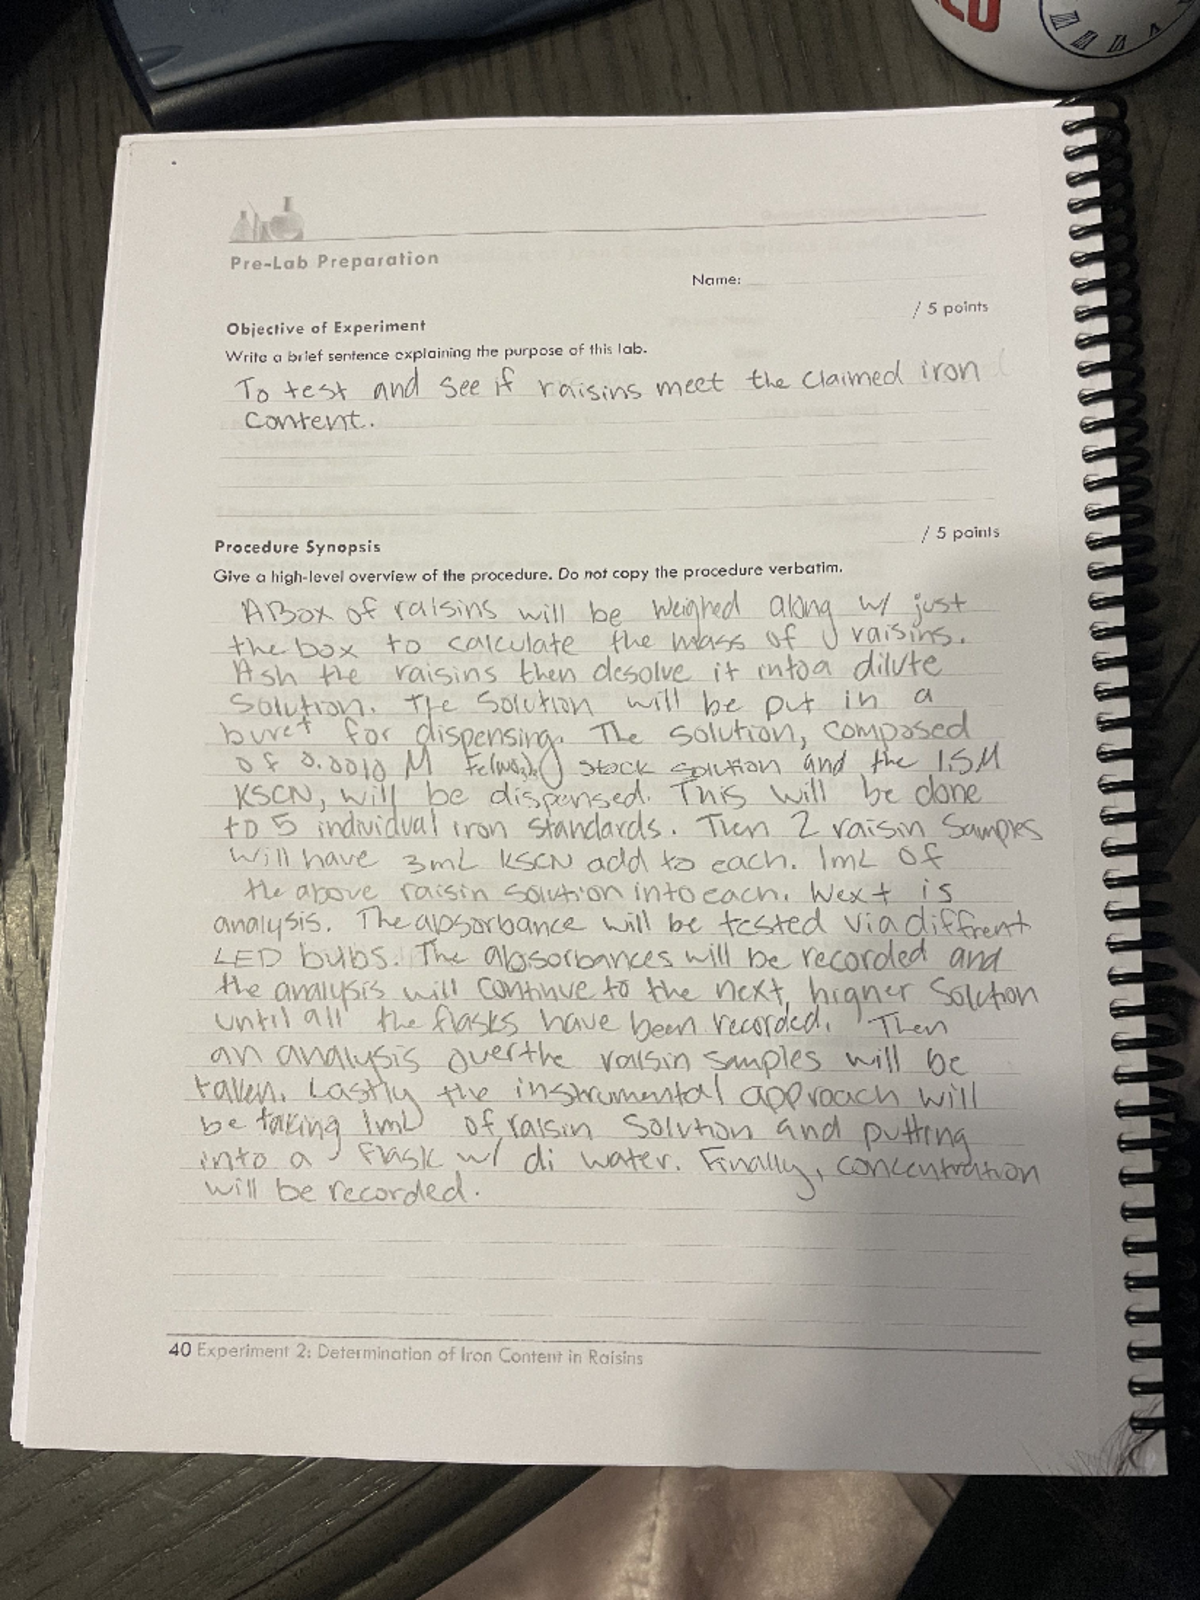 Pre-Lab Preparation
Name:
/ 5 points
Objective of Experiment
Write a brief sentence explaining the purpose of this lab.
To test and see if raisins meet the claimed iron
content.
/ 5 points
Procedure Synopsis
Give a high-level overview of the procedure. Do not copy the procedure verbatim.
A Box of raisins will be weighed along w/ just
the box to calculate the mass of raisins.
Ash the raisins then desolve it into a dilute
Solution. The Solution will be put in a
buret for dispensing. The solution, composed
of 0.0010 M Fe(NO3)3 stock solution and the 1.5M
KSCN, will be dispensed. This will be done
to 5 individual iron standards. Then 2 raisin Samples
will have 3mL KSCN add to each. 1mL of
the above raisin solution into each. Next is
analysis. The absorbance will be tested via diffrent
LED bulbs. The absorbances will be recorded and
the analysis will continue to the next, higher Solution
until all the flasks have been recorded. Then
an analysis over the raisin samples will be
taken. Lastly the instrumental approach will
be taking 1mL of raisin Solution and putting
into a flask w/ di water. Finally, concentration
will be recorded.
40 Experiment 2: Determination of Iron Content in Raisins